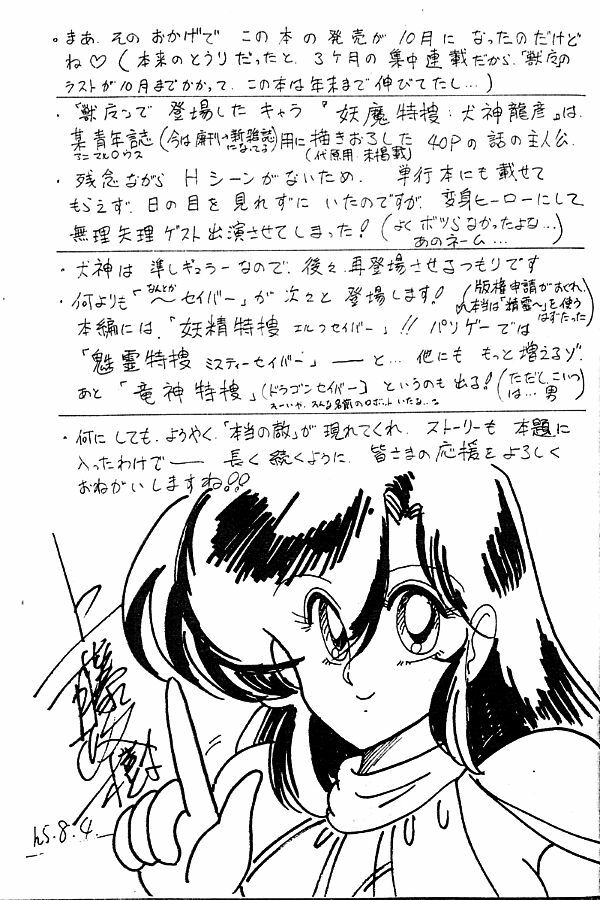 。まあ、そのおかげで この本の発売が10月に なったのだけど
ね♡ (本来のとうりだったと、3ケ月の集中連載だから、「獣仮」の
ラストが10月までかかって、この本は年末まで伸びてたし…)
・「獣仮」で 登場した キャラ 『妖魔特捜:犬神龍彦』は、
某青年誌(今は廃刊→新雑誌になってる)用に描きおろした 40Pの話の主人公。
アニマルハウス
(代原用・未掲載)
・残念ながら Hシーンがないため、 単行本にも載せて
もらえず、日の目を見れずに いたのですが、変身ヒーローにして
無理矢理 ゲスト出演させてしまった! (よく ボツらなかったよな…)
あのネーム…
・犬神は 準レギュラーなので、後々、再登場させるつもりです
・何よりも「〜セイバー」が 次々と 登場します! (版権申請がおくれ、
なんとか
本当は「精霊〜」を使う
はずだった)
本編には、「妖精特捜 エルフセイバー」!! パソゲーでは
「魅霊特捜 ミスティーセイバー」 ――と… 他にも もっと増えるゾ。
あと 「竜神特捜」(ドラゴンセイバー) というのも出る! (ただし、こいつ
は… 男)
えーいや、そんな名前のロボットいたな…。
・何にしても、ようやく、「本当の敵」が 現れてくれ、 ストーリーも 本題に
入ったわけで―― 長く続くように、 皆さまの応援をよろしく
おねがいしますね!!
h5.8.4